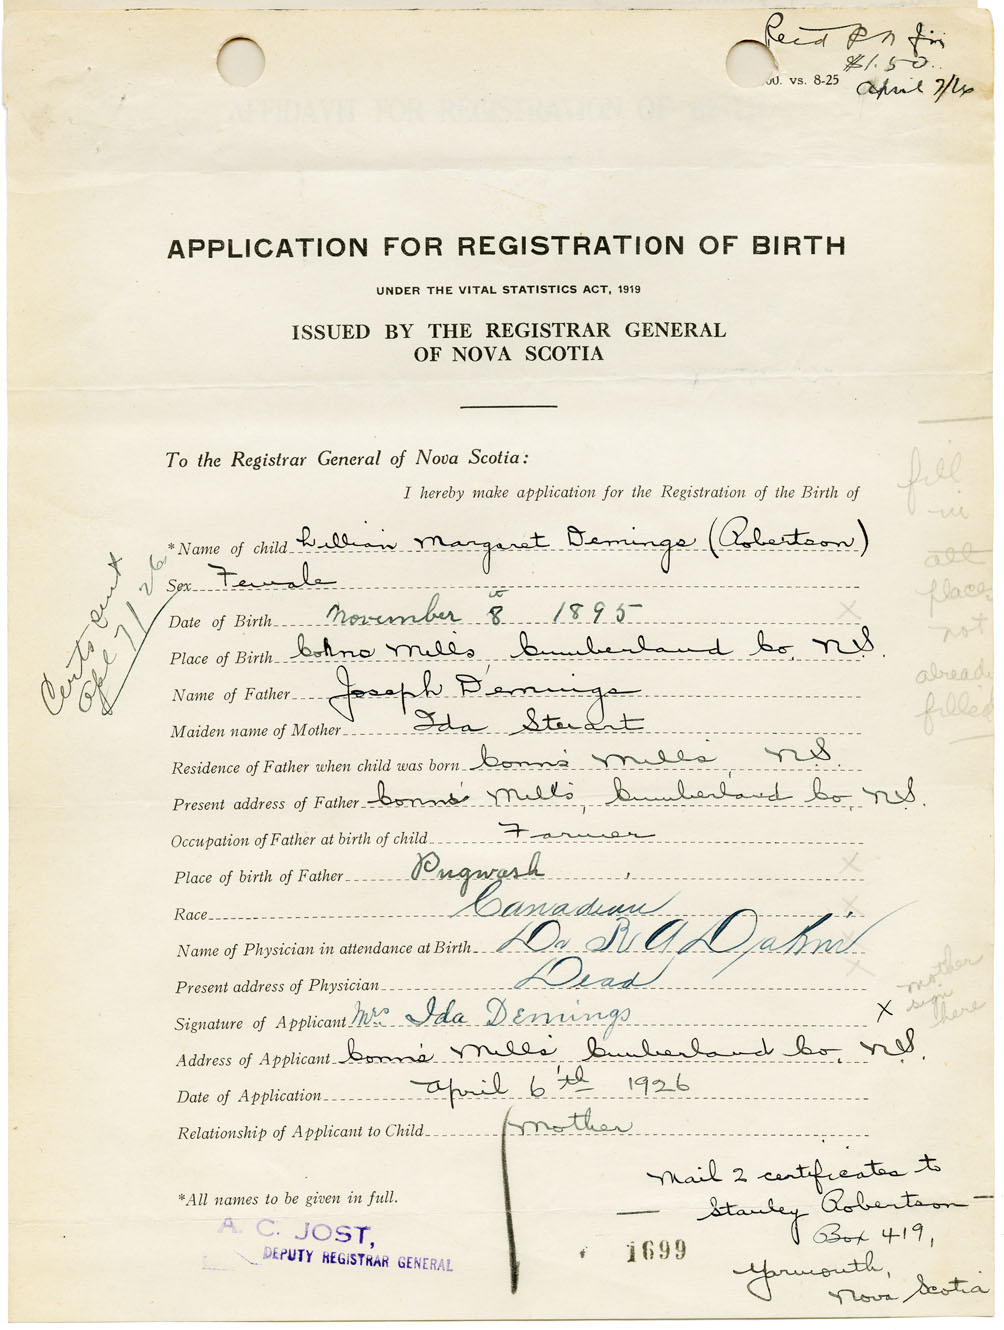 Recd P N for
$1.50
00. vs. 8-25 April 7/26
APPLICATION FOR REGISTRATION OF BIRTH
UNDER THE VITAL STATISTICS ACT, 1919
ISSUED BY THE REGISTRAR GENERAL
OF NOVA SCOTIA
To the Registrar General of Nova Scotia:
I hereby make application for the Registration of the Birth of
*Name of child Lillian Margaret Demings (Robertson)
Sex Female
Date of Birth November 8th 1895
Place of Birth Conns Mills, Cumberland Co, N.S.
Name of Father Joseph Demings
Maiden name of Mother Ida Stewart
Residence of Father when child was born Conn's Mills, N.S.
Present address of Father Conns Mills, Cumberland Co, N.S.
Occupation of Father at birth of child Farmer
Place of birth of Father Pugwash
Race Canadian
Name of Physician in attendance at Birth Dr R A Dakin
Present address of Physician Dead
Signature of Applicant Mrs Ida Demings X
Address of Applicant Conn's Mills Cumberland Co, N.S.
Date of Application April 6th 1926
Relationship of Applicant to Child Mother
*All names to be given in full.
Certs sent
Apl 7/26
fill
in
all
places
not
already
filled
mother
sign
here
Mail 2 certificates to
Stanley Robertson
Box 419,
Yarmouth,
Nova Scotia
A. C. JOST,
DEPUTY REGISTRAR GENERAL
1699